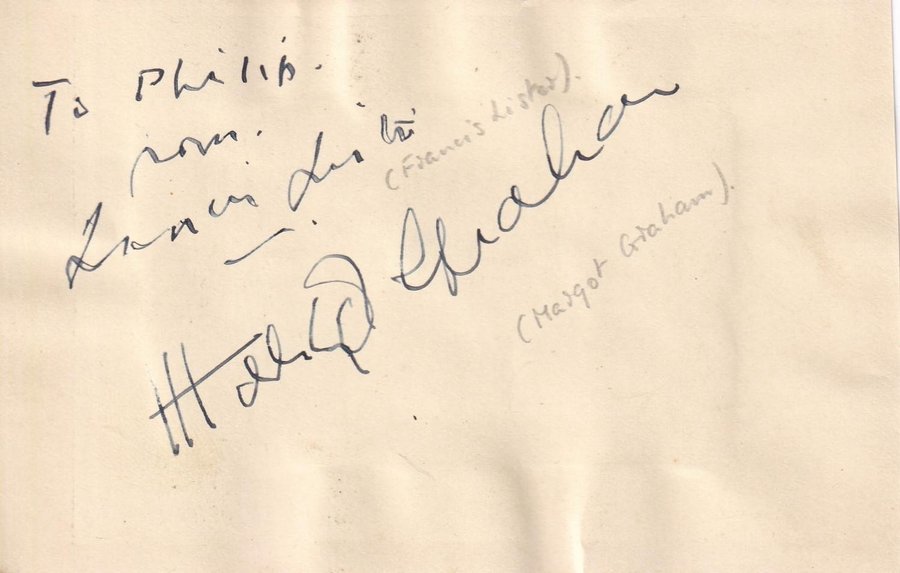 To Philip.
from.
Francis Lister
(Francis Lister).
Margot Graham
(Margot Graham).